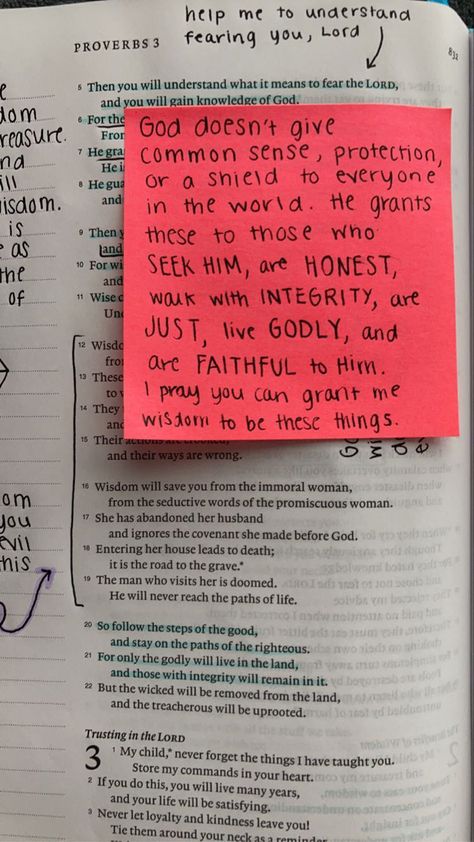 help me to understand
fearing you, Lord
PROVERBS 3
5 Then you will understand what it means to fear the LORD,
and you will gain knowledge of God.
6 For the
From
7 He gra
He i
8 He gua
and
9 Then y
and
10 For wi
and
11 Wise c
Un
12 Wisdo
from
13 These
to
14 They
and
15 Their actions are crooked,
and their ways are wrong.
God doesn't give
common sense, protection,
or a shield to everyone
in the world. He grants
these to those who
SEEK HIM, are HONEST,
walk with INTEGRITY, are
JUST, live GODLY, and
are FAITHFUL to Him.
I pray you can grant me
wisdom to be these things.
16 Wisdom will save you from the immoral woman,
from the seductive words of the promiscuous woman.
17 She has abandoned her husband
and ignores the covenant she made before God.
18 Entering her house leads to death;
it is the road to the grave.*
19 The man who visits her is doomed.
He will never reach the paths of life.
20 So follow the steps of the good,
and stay on the paths of the righteous.
21 For only the godly will live in the land,
and those with integrity will remain in it.
22 But the wicked will be removed from the land,
and the treacherous will be uprooted.
Trusting in the LORD
3 1 My child,* never forget the things I have taught you.
Store my commands in your heart.
2 If you do this, you will live many years,
and your life will be satisfying.
3 Never let loyalty and kindness leave you!
Tie them around your neck as a reminder.
dom
reasure.
nd
ill
isdom.
is
e as
the
of
om
you
evil
his